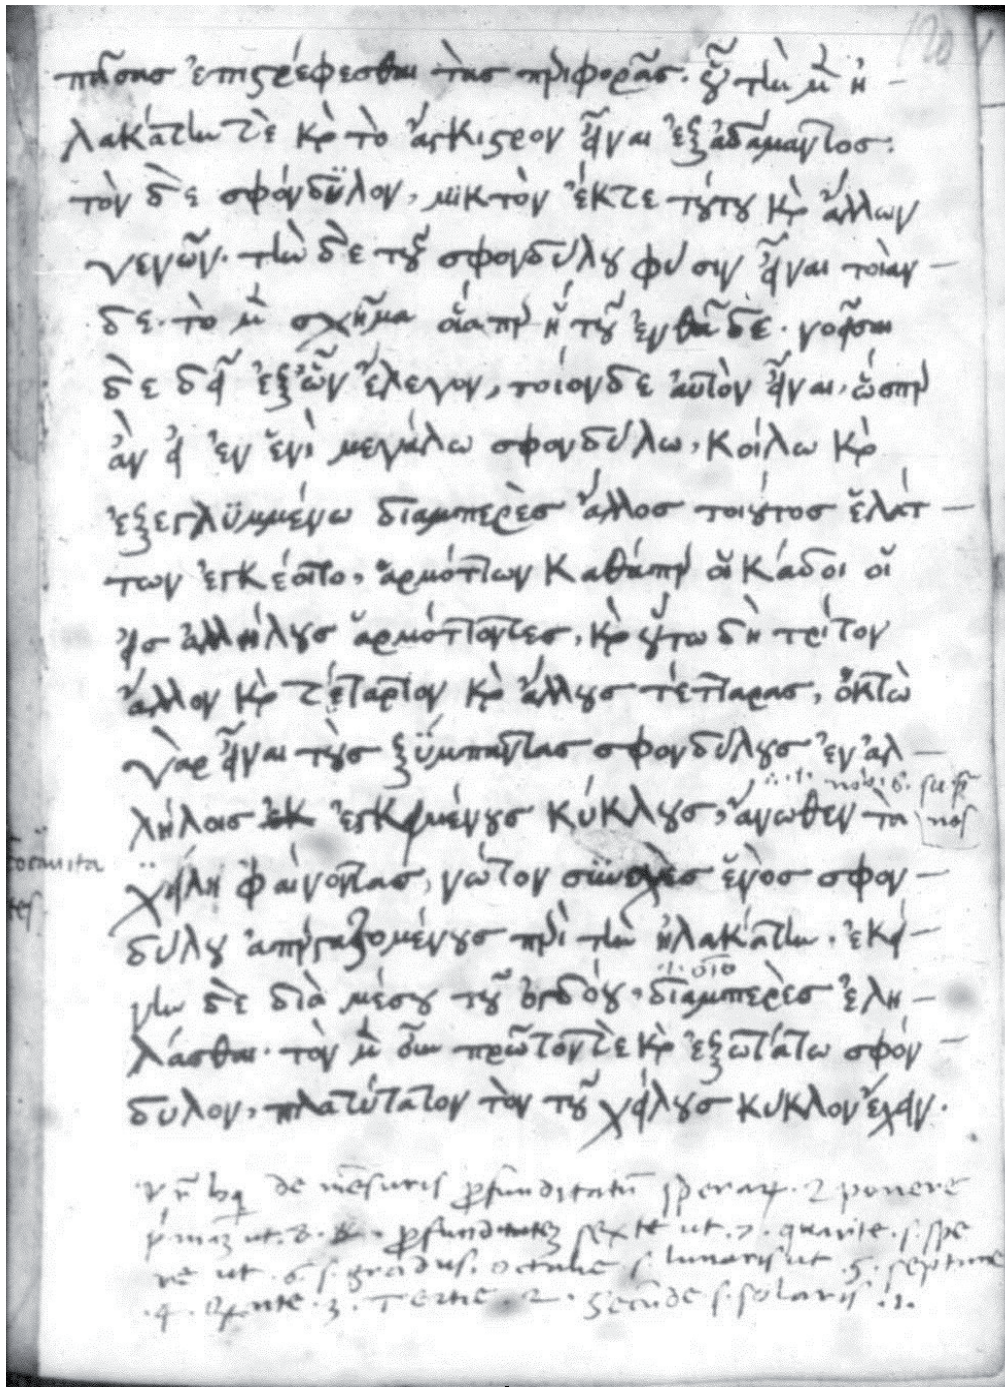 πάσας ἐπιστρέφεσθαι τὰς περιφοράς. οὗ τὴν μὲν ἠ
λακάτην τὲ καὶ τὸ ἄγκιστρον εἶναι ἐξ ἀδάμαντος.
τὸν δὲ σφόνδϋλον, μικτὸν ἔκτε τούτου καὶ ἄλλων
γενῶν. τὴν δὲ τοῦ σφονδύλου φύσιν εἶναι τοιάν
δε. τὸ μὲν σχῆμα οἵαπερ ἡ τοῦ ἐνθάδε. νοῆσαι
δὲ δεῖ ἐξ ὧν ἔλεγον, τοίονδε αὐτὸν εἶναι, ὥσπερ
ἂν εἰ ἐν ἑνὶ μεγάλω σφονδύλω, κοίλω καὶ
ἐξεγλϋμμένω διαμπερὲς ἄλλος τοιοῦτος ἐλάτ
των ἐγκέοιτο, ἁρμόττων καθάπερ οἱ κάδοι οἱ
εἰς ἀλλήλους ἁρμόττοντες, καὶ οὕτω δὴ τρίτον
ἄλλον καὶ τέταρτον καὶ ἄλλους τέτταρας, ὀκτὼ
γὰρ εἶναι τοὺς ξύμπαντας σφονδύλους ἐν ἀλ
λήλοις ἐγκειμένους κύκλους, ἄνωθεν τὰ
χείλη φαίνοντας, νῶτον συνεχὲς ἑνὸς σφον
δύλου ἀπεργαζομένους περὶ τὴν ἠλακάτην. ἐκεί
νην δὲ διὰ μέσου τοῦ ὀγδόου, διαμπερὲς ἐλη
λάσθαι. τὸν μὲν οὖν πρῶτόν τε καὶ ἐξωτάτω σφόν
δυλον, πλατύτατον τὸν τοῦ χείλους κύκλον ἔχειν.
de mesuris profunditatum sperarum. ponere
ut .8. profunditatem sexte ut .7. quarte .s. spe
re ut .6. s. gradus. octave s. lunaris ut .5. septime
.4. quinte .3. Tertie .2. Secunde s. solaris .1.